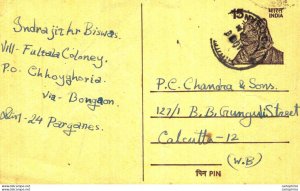 Indrajit kr Biswas.
Vill- Fultala Coloney.
P.o Chhoyghoria
via- Bongaon
Dist- 24 Parganas
15
भारत
INDIA
P.C. Chandra & Sons.
127/1 B.B. Gunguli Street
Calcutta-12
(W.B)
पिन PIN